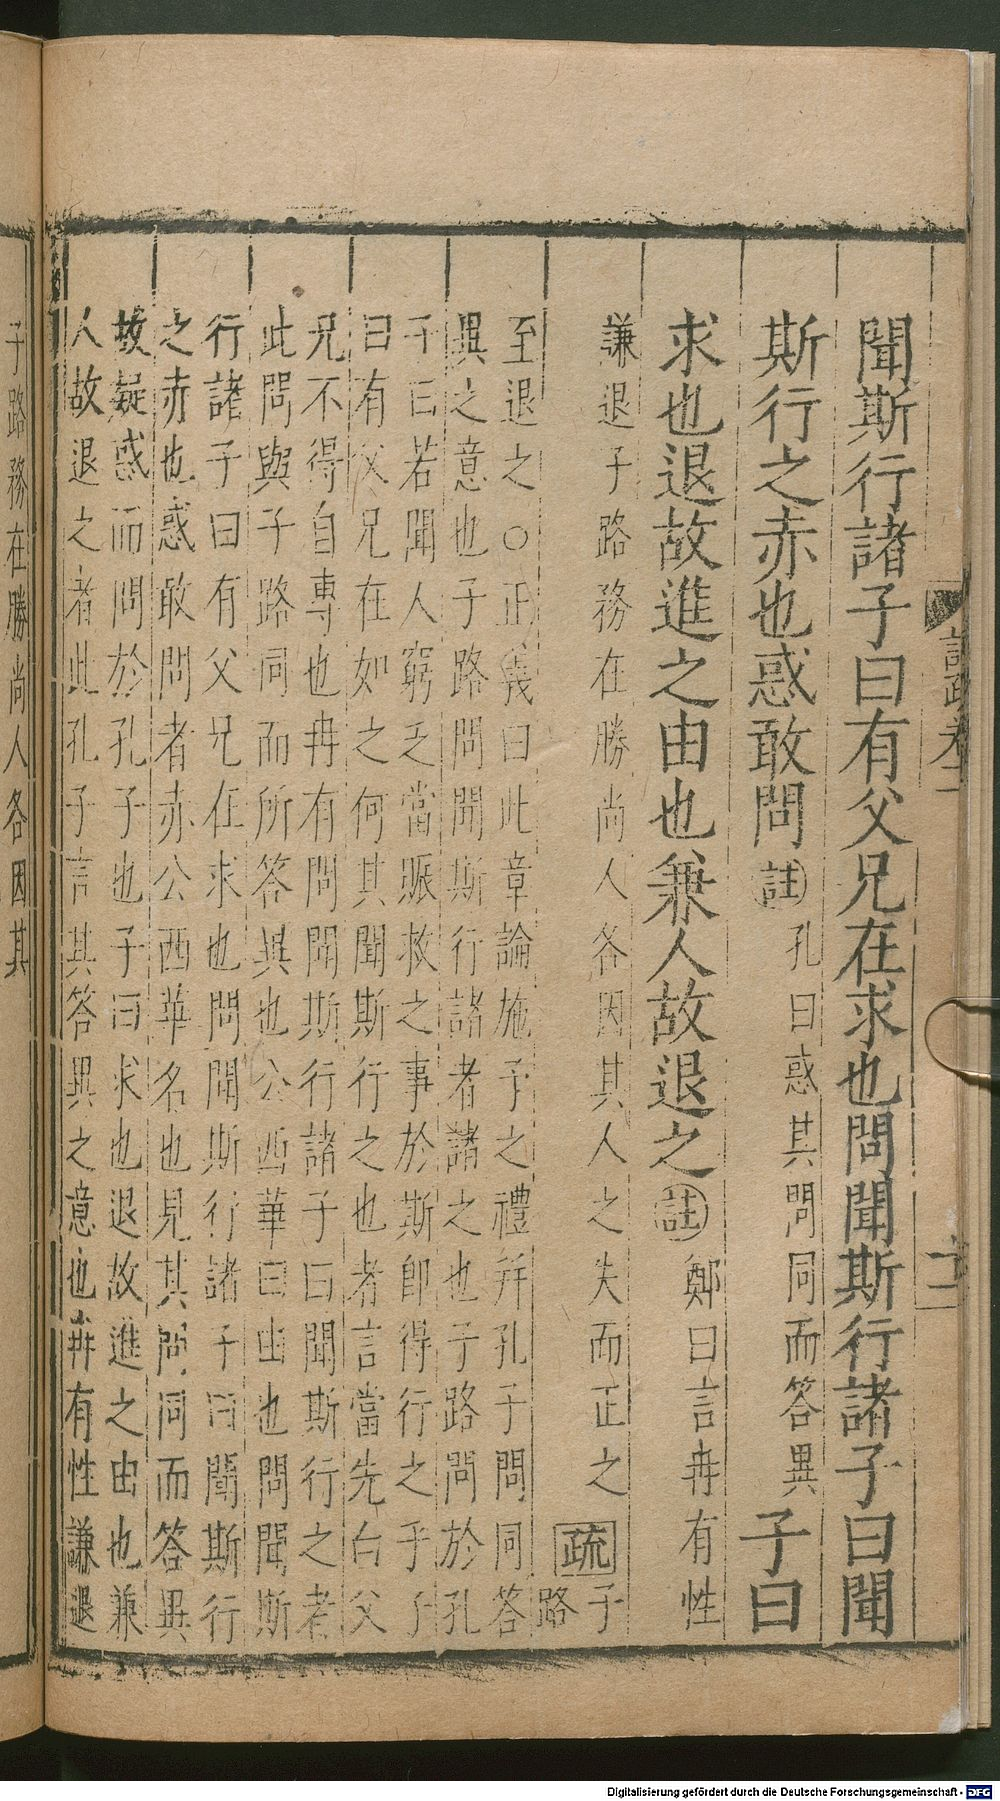 聞斯行諸子曰有父兄在求也問聞斯行諸子曰聞
斯行之赤也惑敢問註孔曰惑其問同而答異子曰
求也退故進之由也兼人故退之註鄭曰言冉有性
謙退子路務在勝尚人各因其人之失而正之疏子路
至退之○正義曰此章論施予之禮并孔子問同答
異之意也子路問聞斯行諸者諸之也子路問於孔
子曰若聞人窮乏當賑救之事於斯即得行之乎子
曰有父兄在如之何其聞斯行之也者言當先白父
兄不得自專也冉有問聞斯行諸子曰聞斯行之者
此問與子路同而所答異也公西華曰由也問聞斯
行諸子曰有父兄在求也問聞斯行諸子曰聞斯行
之赤也惑敢問者赤公西華名也見其問同而答異
故疑惑而問於孔子也子曰求也退故進之由也兼
人故退之者此孔子言其答異之意也冉有性謙退
子路務在勝尚人各因其
Digitalisierung gefördert durch die Deutsche Forschungsgemeinschaft - DFG